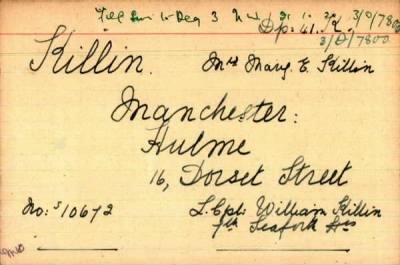 3/0/7800
Dp: 41.
3/0/7800
Killin. Mrs Marg. E. Killin
Manchester:
Hulme
16, Dorset Street
No: S/10672 L. Cpl: William Killin
7th Seaforth Hrs